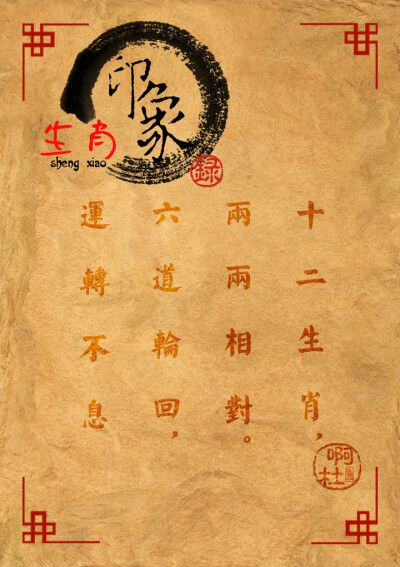 印象
生肖
sheng xiao
録
十二生肖，
兩兩相對。
六道輪回，
運轉不息
啊杜圖